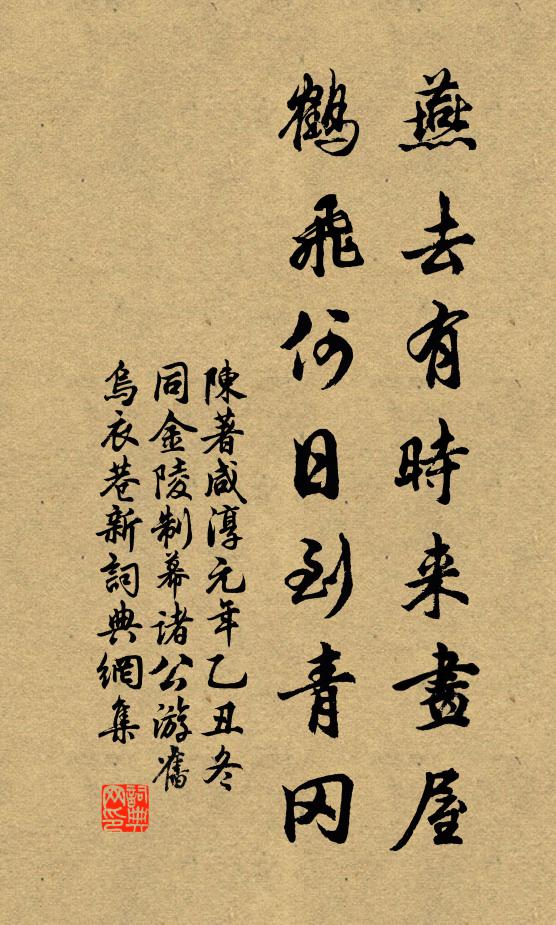 燕去有時来畫屋
鶴飛何日到青冈
陳著咸淳元年乙丑冬
同金陵制幕諸公游舊
烏衣巷新詞典網集
詞典网印